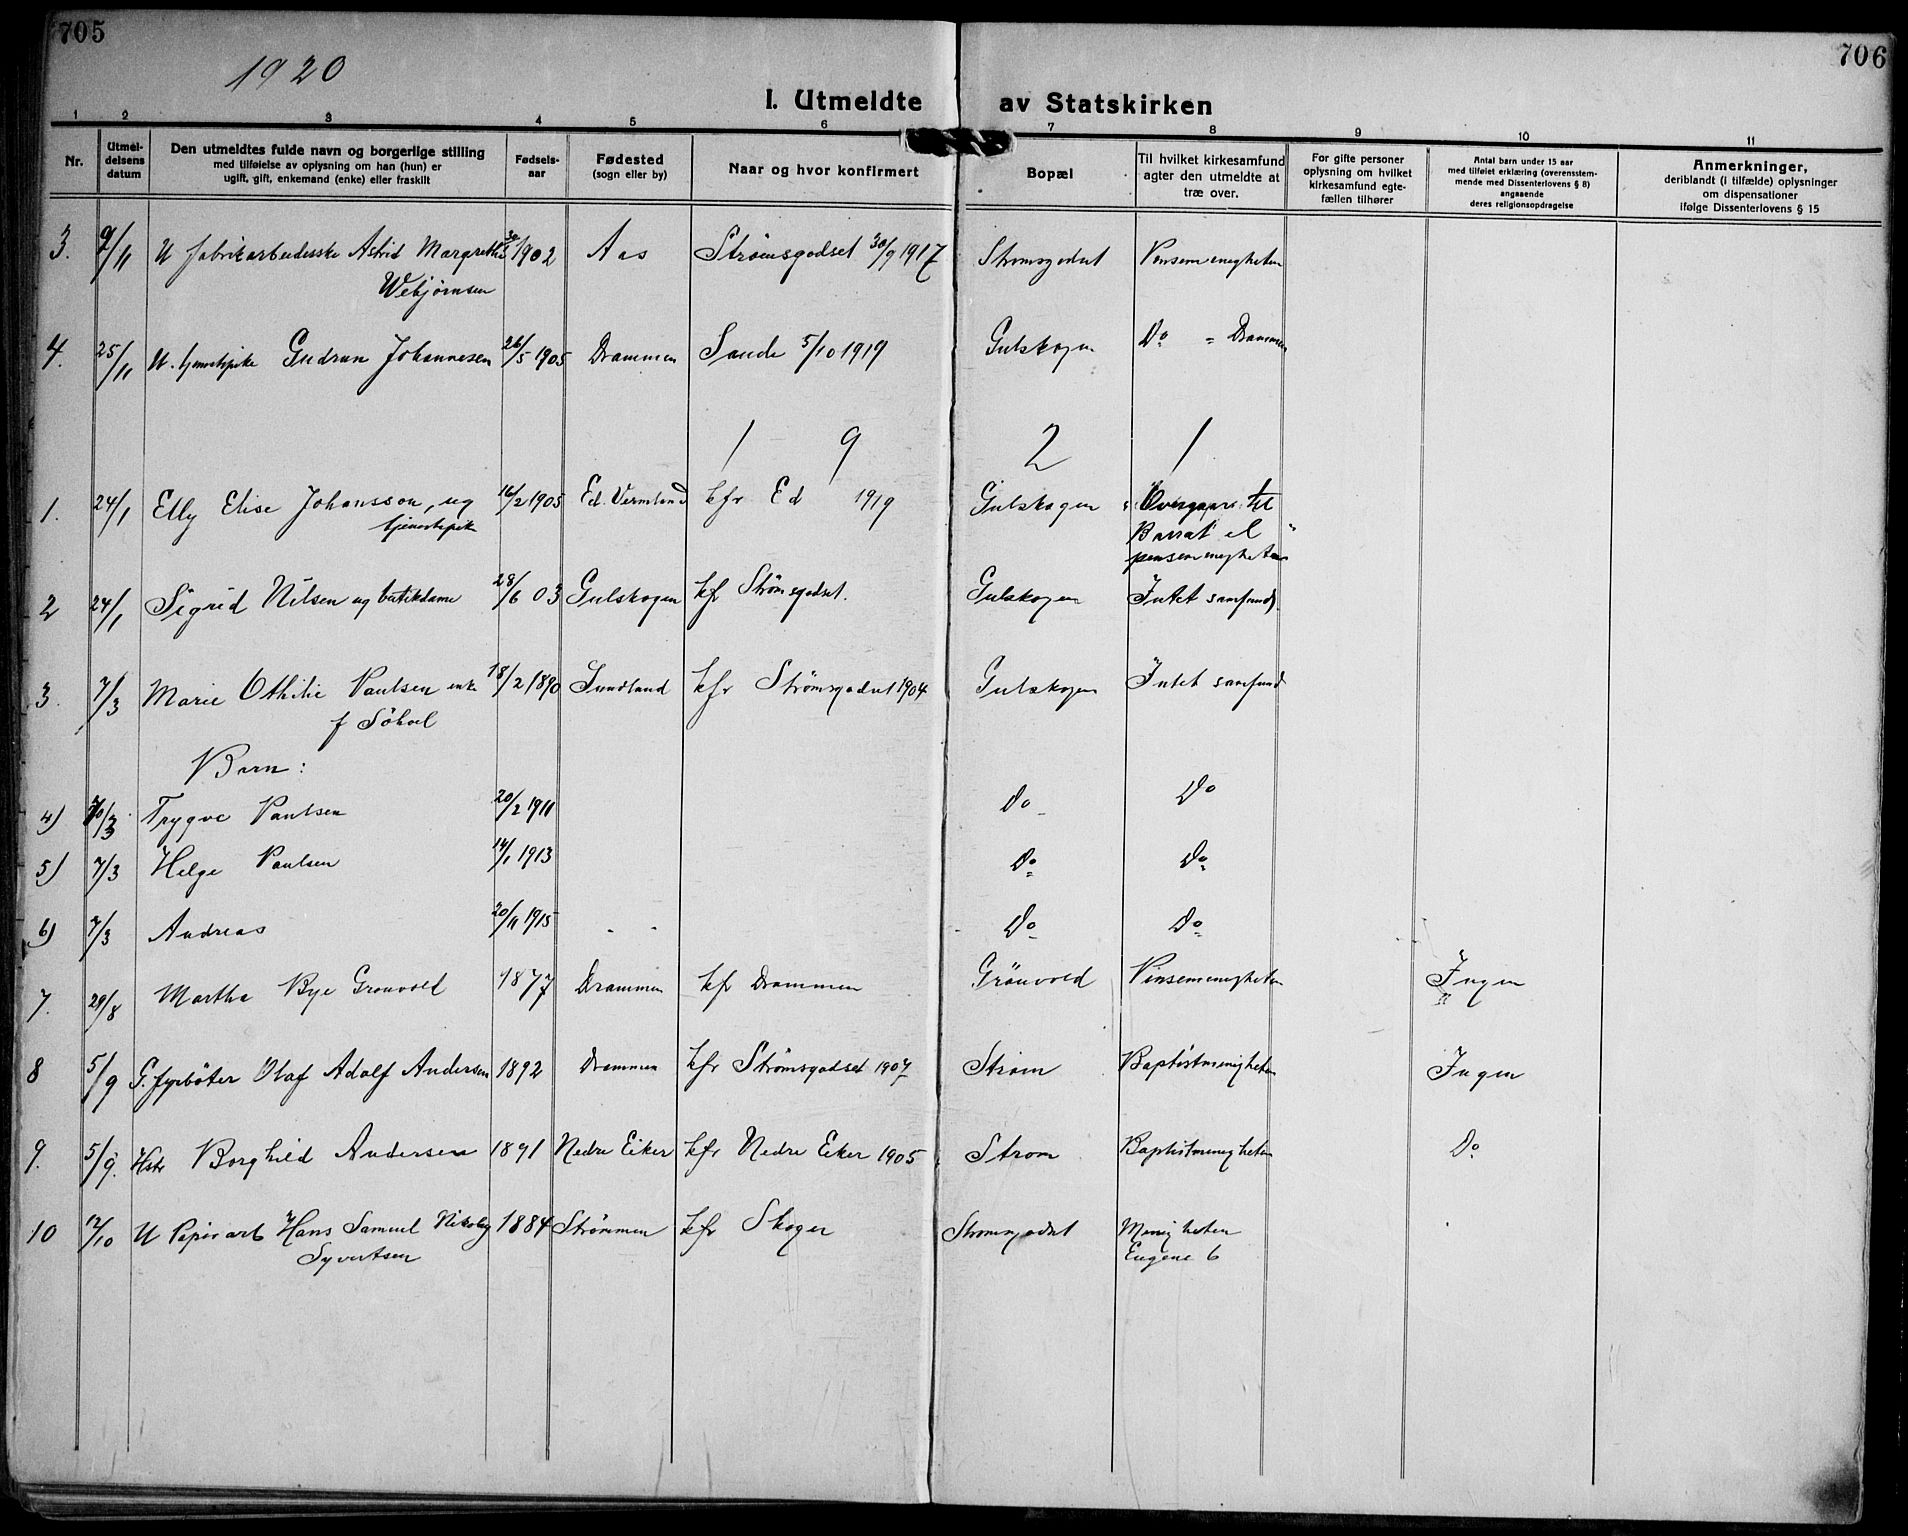 705
706
1920
I. Utmeldte av Statskirken
1 2 3 4 5 6 7 8 9 10 11
Nr.
Utmel-
delsens
datum
Den utmeldtes fulde navn og borgerlige stilling
med tilføielse av oplysning om han (hun) er
ugift, gift, enkemand (enke) eller fraskilt
Fødsels-
aar
Fødested
(sogn eller by)
Naar og hvor konfirmert
Bopæl
Til hvilket kirkesamfund
agter den utmeldte at
træ over.
For gifte personer
oplysning om hvilket
kirkesamfund egte-
fællen tilhører
Antal barn under 15 aar
med tilføiet erklæring (overensstem-
mende med Dissenterlovens § 8)
angaaende
deres religionsopdragelse
Anmerkninger,
deriblandt (i tilfælde) oplysninger
om dispensationer
ifølge Dissenterlovens § 15
3. 9/11 U fabrikarbeiderske Astrid Margrethe 1902 Aas Strømsgodset 30/9 1917 Strømsgodset Pinsemenigheten
Webjørnsen
4. 25/11 U. tjenestepike Gudrun Johannesen 26/5 1905 Drammen Sande 5/10 1919 Gulskogen Do = Drammen
1 9 2 1
1. 24/1 Elly Elise Johansson, ug 16/2 1905 Ed. Vermland kfr Ed 1919 Gulskogen Overgaar til
tjenestepike Barrat el
pinsemenigheten
2 24/1 Sigrid Nilsen ug butikdame 28/6 03 Gulskogen kfr Strømsgodset. Gulskogen Intet samfund
3. 7/3 Marie Othilie Paulsen enke 18/2 1890 Sundland kfr Strømsgodset 1904 Gulskogen Intet samfund
f Söhol
Barn:
4) 7/3 Trygve Paulsen 20/2 1911 Do Do
5) 7/3 Helge Paulsen 14/1 1913 Do Do
6) 7/3 Andreas 20/11 1915 Do Do
7. 29/8 Martha Bye Grönvold 1877 Drammen kfr Drammen Grönvold Pinsemenigheten Ingen
8 5/9 G. fyrböter Olaf Adolf Andersen 1892 Drammen kfr Strømsgodset 1907 Strøm Baptistmenigheten Ingen
9. 5/9. Hstr Borghild Andersen 1891 Nedre Eiker kfr Nedre Eiker 1905 Strøm Baptistmenigheten Do
10 12/10 U Papirarb Hans Samuel Nikolay 1884 Strømmen kfr Skoger Strømsgodset Menigheten
Syvertsen Eugenes 6